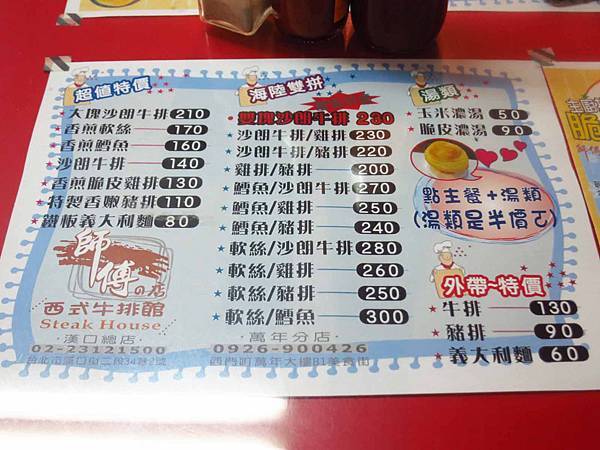 超值特價
大塊沙朗牛排 210
香煎軟絲 170
香煎鱈魚 160
沙朗牛排 140
香煎脆皮雞排 130
特製香嫩豬排 110
鐵板義大利麵 80
師傅の店
西式牛排館
Steak House
·漢口總店·
02-23121500
台北市漢口街二段34巷2號
海陸雙拼
雙塊沙朗牛排 230
沙朗牛排/雞排 230
沙朗牛排/豬排 220
雞排/豬排 200
鱈魚/沙朗牛排 270
鱈魚/雞排 250
鱈魚/豬排 240
軟絲/沙朗牛排 280
軟絲/雞排 260
軟絲/豬排 250
軟絲/鱈魚 300
·萬年分店·
0926-900426
西門町萬年大樓B1美食街
湯類
玉米濃湯 50
脆皮濃湯 90
點主餐+湯類
(湯類是半價ㄛ)
外帶~特價
牛排 130
豬排 90
義大利麵 60